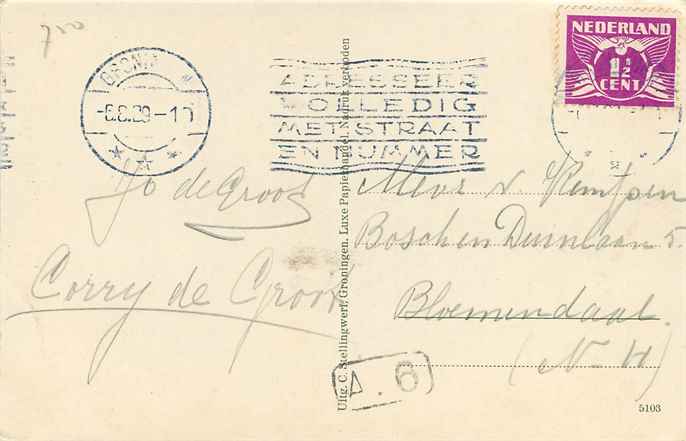 GRONI
-6.8.29-1
ADRESSEER
VOLLEDIG
MET STRAAT
EN NUMMER
NEDERLAND
1½
CENT
Jo de Groot
Corry de Groot
Uitg. C. Stellingwerf, Groningen. Luxe Papierhandel. Nadruk verboden
Mevr v.
Bosch en Duinlaan 5.
Bloemendaal.
(N-H)
A.6
5103